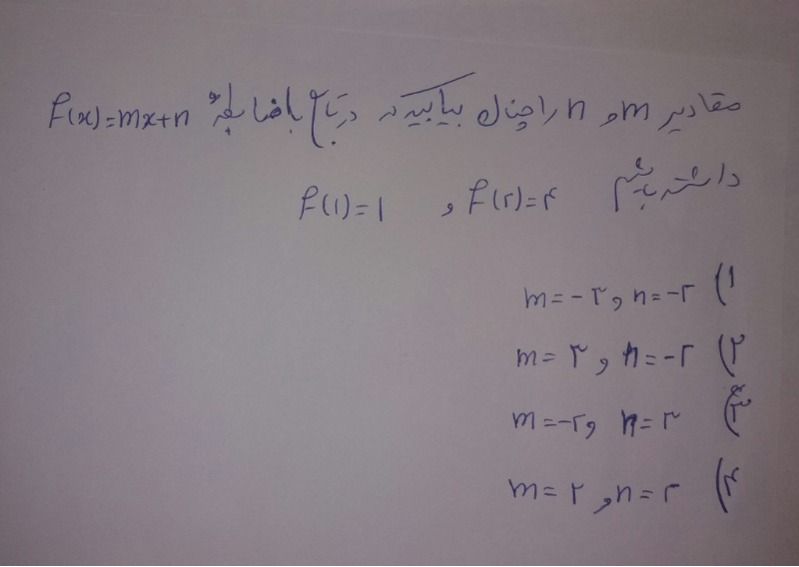 مقادیر m و n را چنان بیابید که در تابع با ضابطهٔ f(x)=mx+n
داشته باشیم f(۲)=۴ و f(۱)=۱
۱) m=-۳ و n=-۲
۲) m=۳ و n=-۲
۳) m=-۲ و n=۳
۴) m=۲ و n=۲